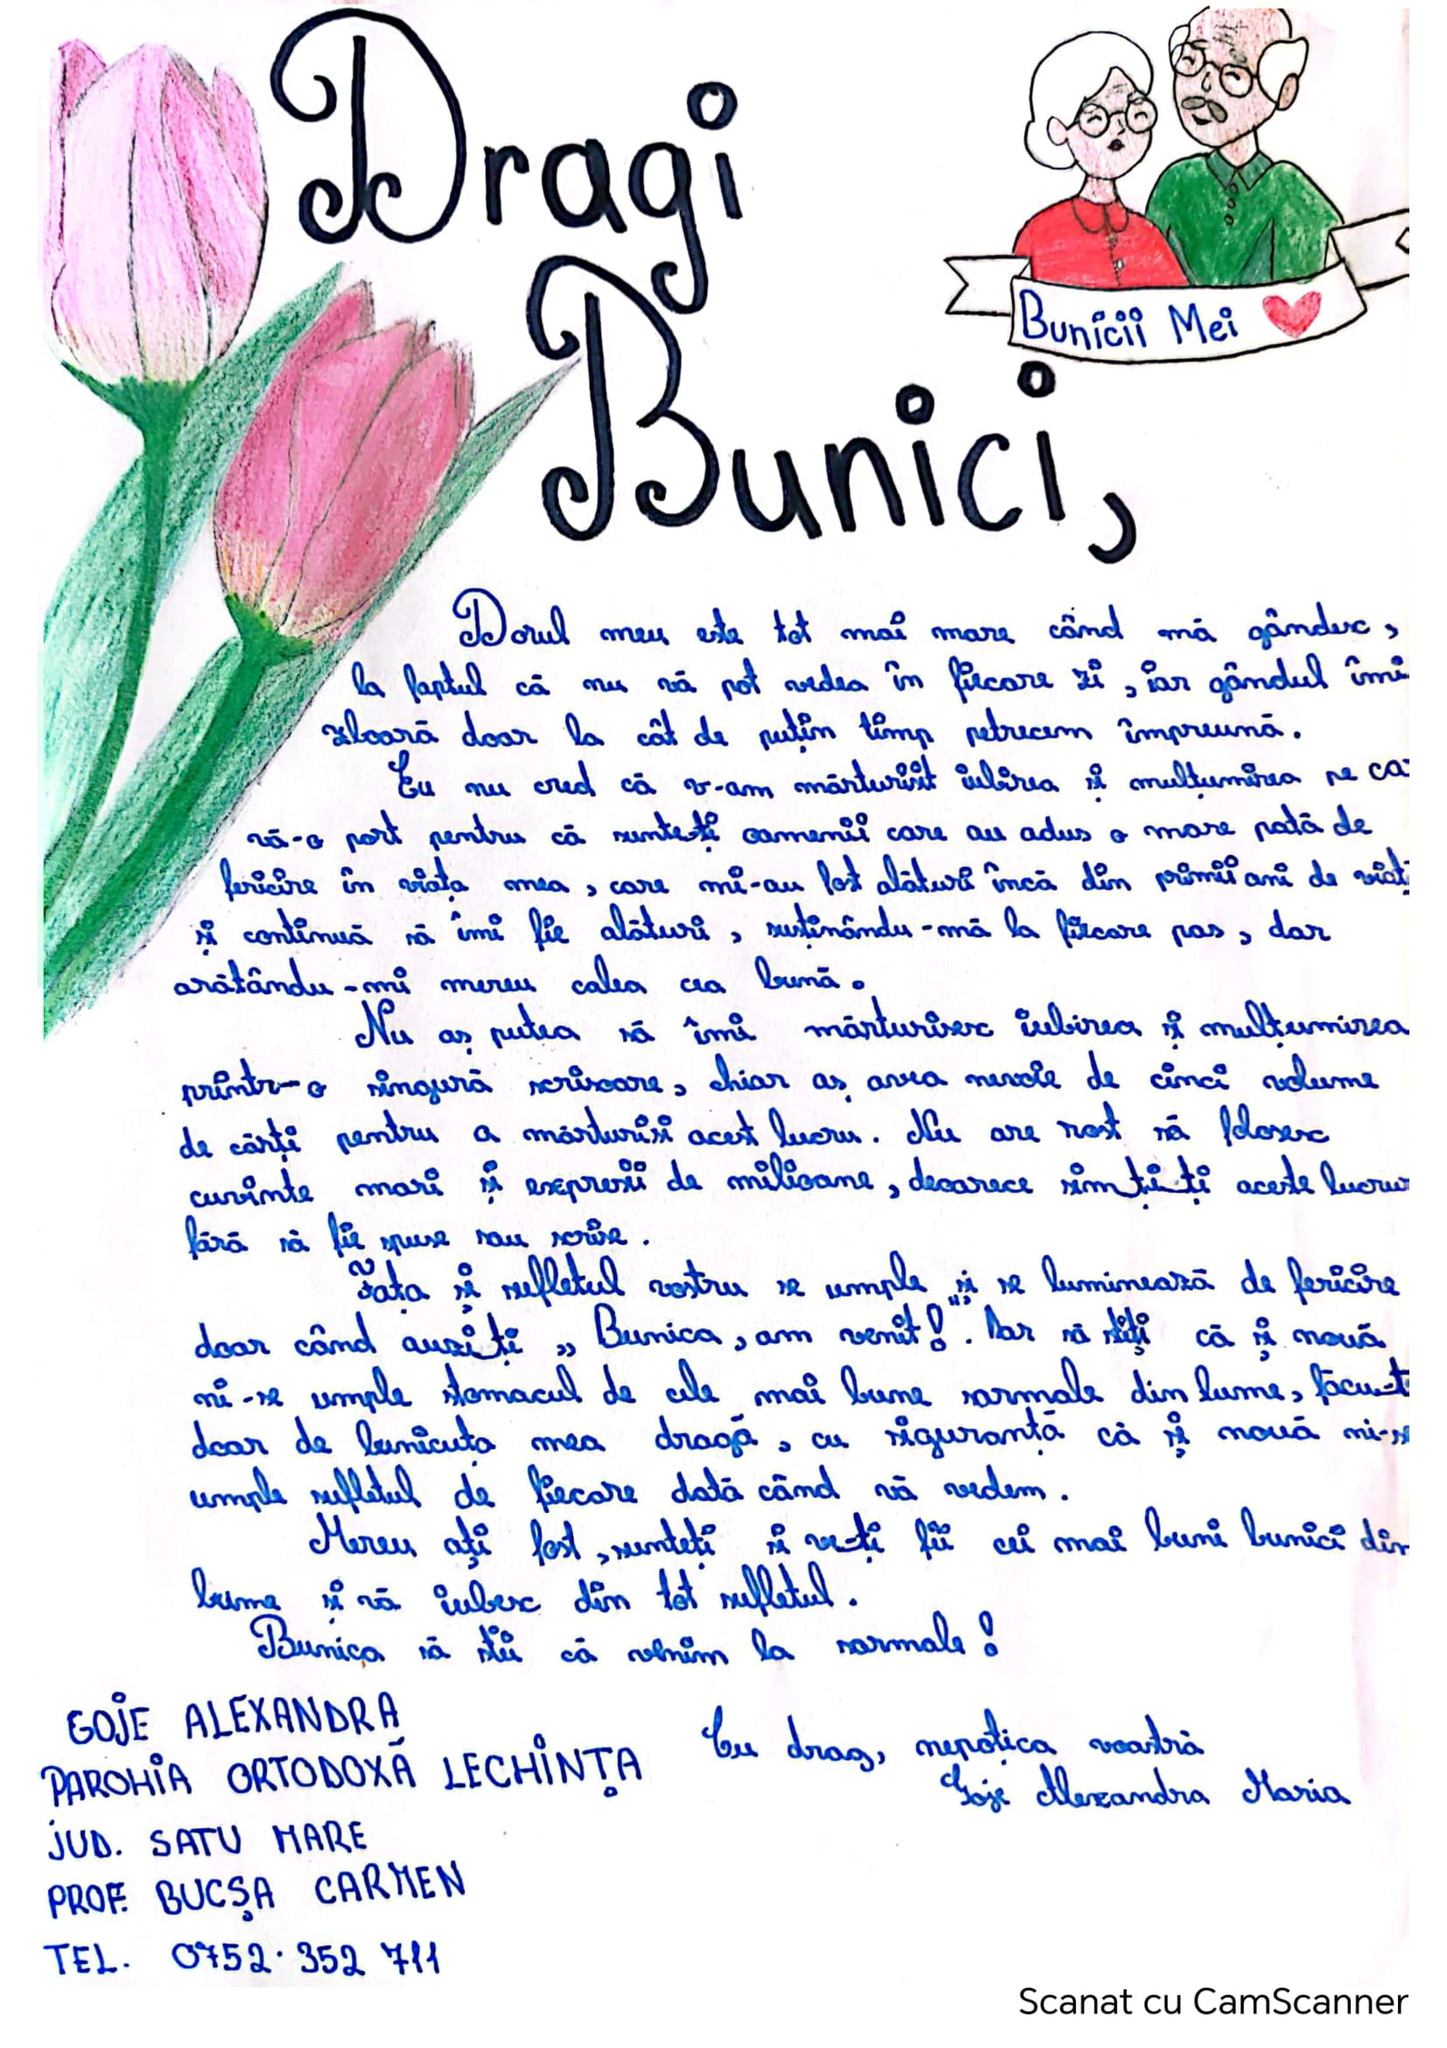 Dragi
Bunici,
Bunicii Mei
Dorul meu este tot mai mare când mă gândesc,
la faptul că nu vă pot vedea în fiecare zi, iar gândul îmi
zboară doar la cât de puțin timp petrecem împreună.
Eu nu cred că v-am mărturisit iubirea și mulțumirea pe ca
vă-o port pentru că sunteți oamenii care au adus o mare pată de
fericire în viața mea, care mi-au fost alături încă din primii ani de viaț
și continuă să îmi fie alături, susținându-mă la fiecare pas, dar
arătându-mi mereu calea cea bună.
Nu aș putea să îmi mărturisesc iubirea și mulțumirea
printr-o singură scrisoare, chiar aș avea nevoie de cinci volume
de cărți pentru a mărturisi acest lucru. Nu are rost să folosesc
cuvinte mari și expresii de milioane, deoarece simțiți aceste lucrur
fără să fie spuse sau scrise.
Fața și sufletul vostru se umple și se luminează de fericire
doar când auziți „Bunica, am venit!". Dar să știți că și nouă
ni-se umple stomacul de cele mai bune sarmale din lume, făcut
doar de bunicuța mea dragă, cu siguranță că și nouă ni-s
umple sufletul de fiecare dată când vă vedem.
Mereu ați fost, sunteți și ve-ți fii cei mai buni bunici din
lume și vă iubesc din tot sufletul.
Bunica să știi că venim la sarmale!
Cu drag, nepoțica voastră
Goje Alexandra Maria
GOJE ALEXANDRA
PAROHIA ORTODOXĂ LECHINȚA
JUD. SATU MARE
PROF. BUCȘA CARMEN
TEL. 0752.352 711
Scanat cu CamScanner